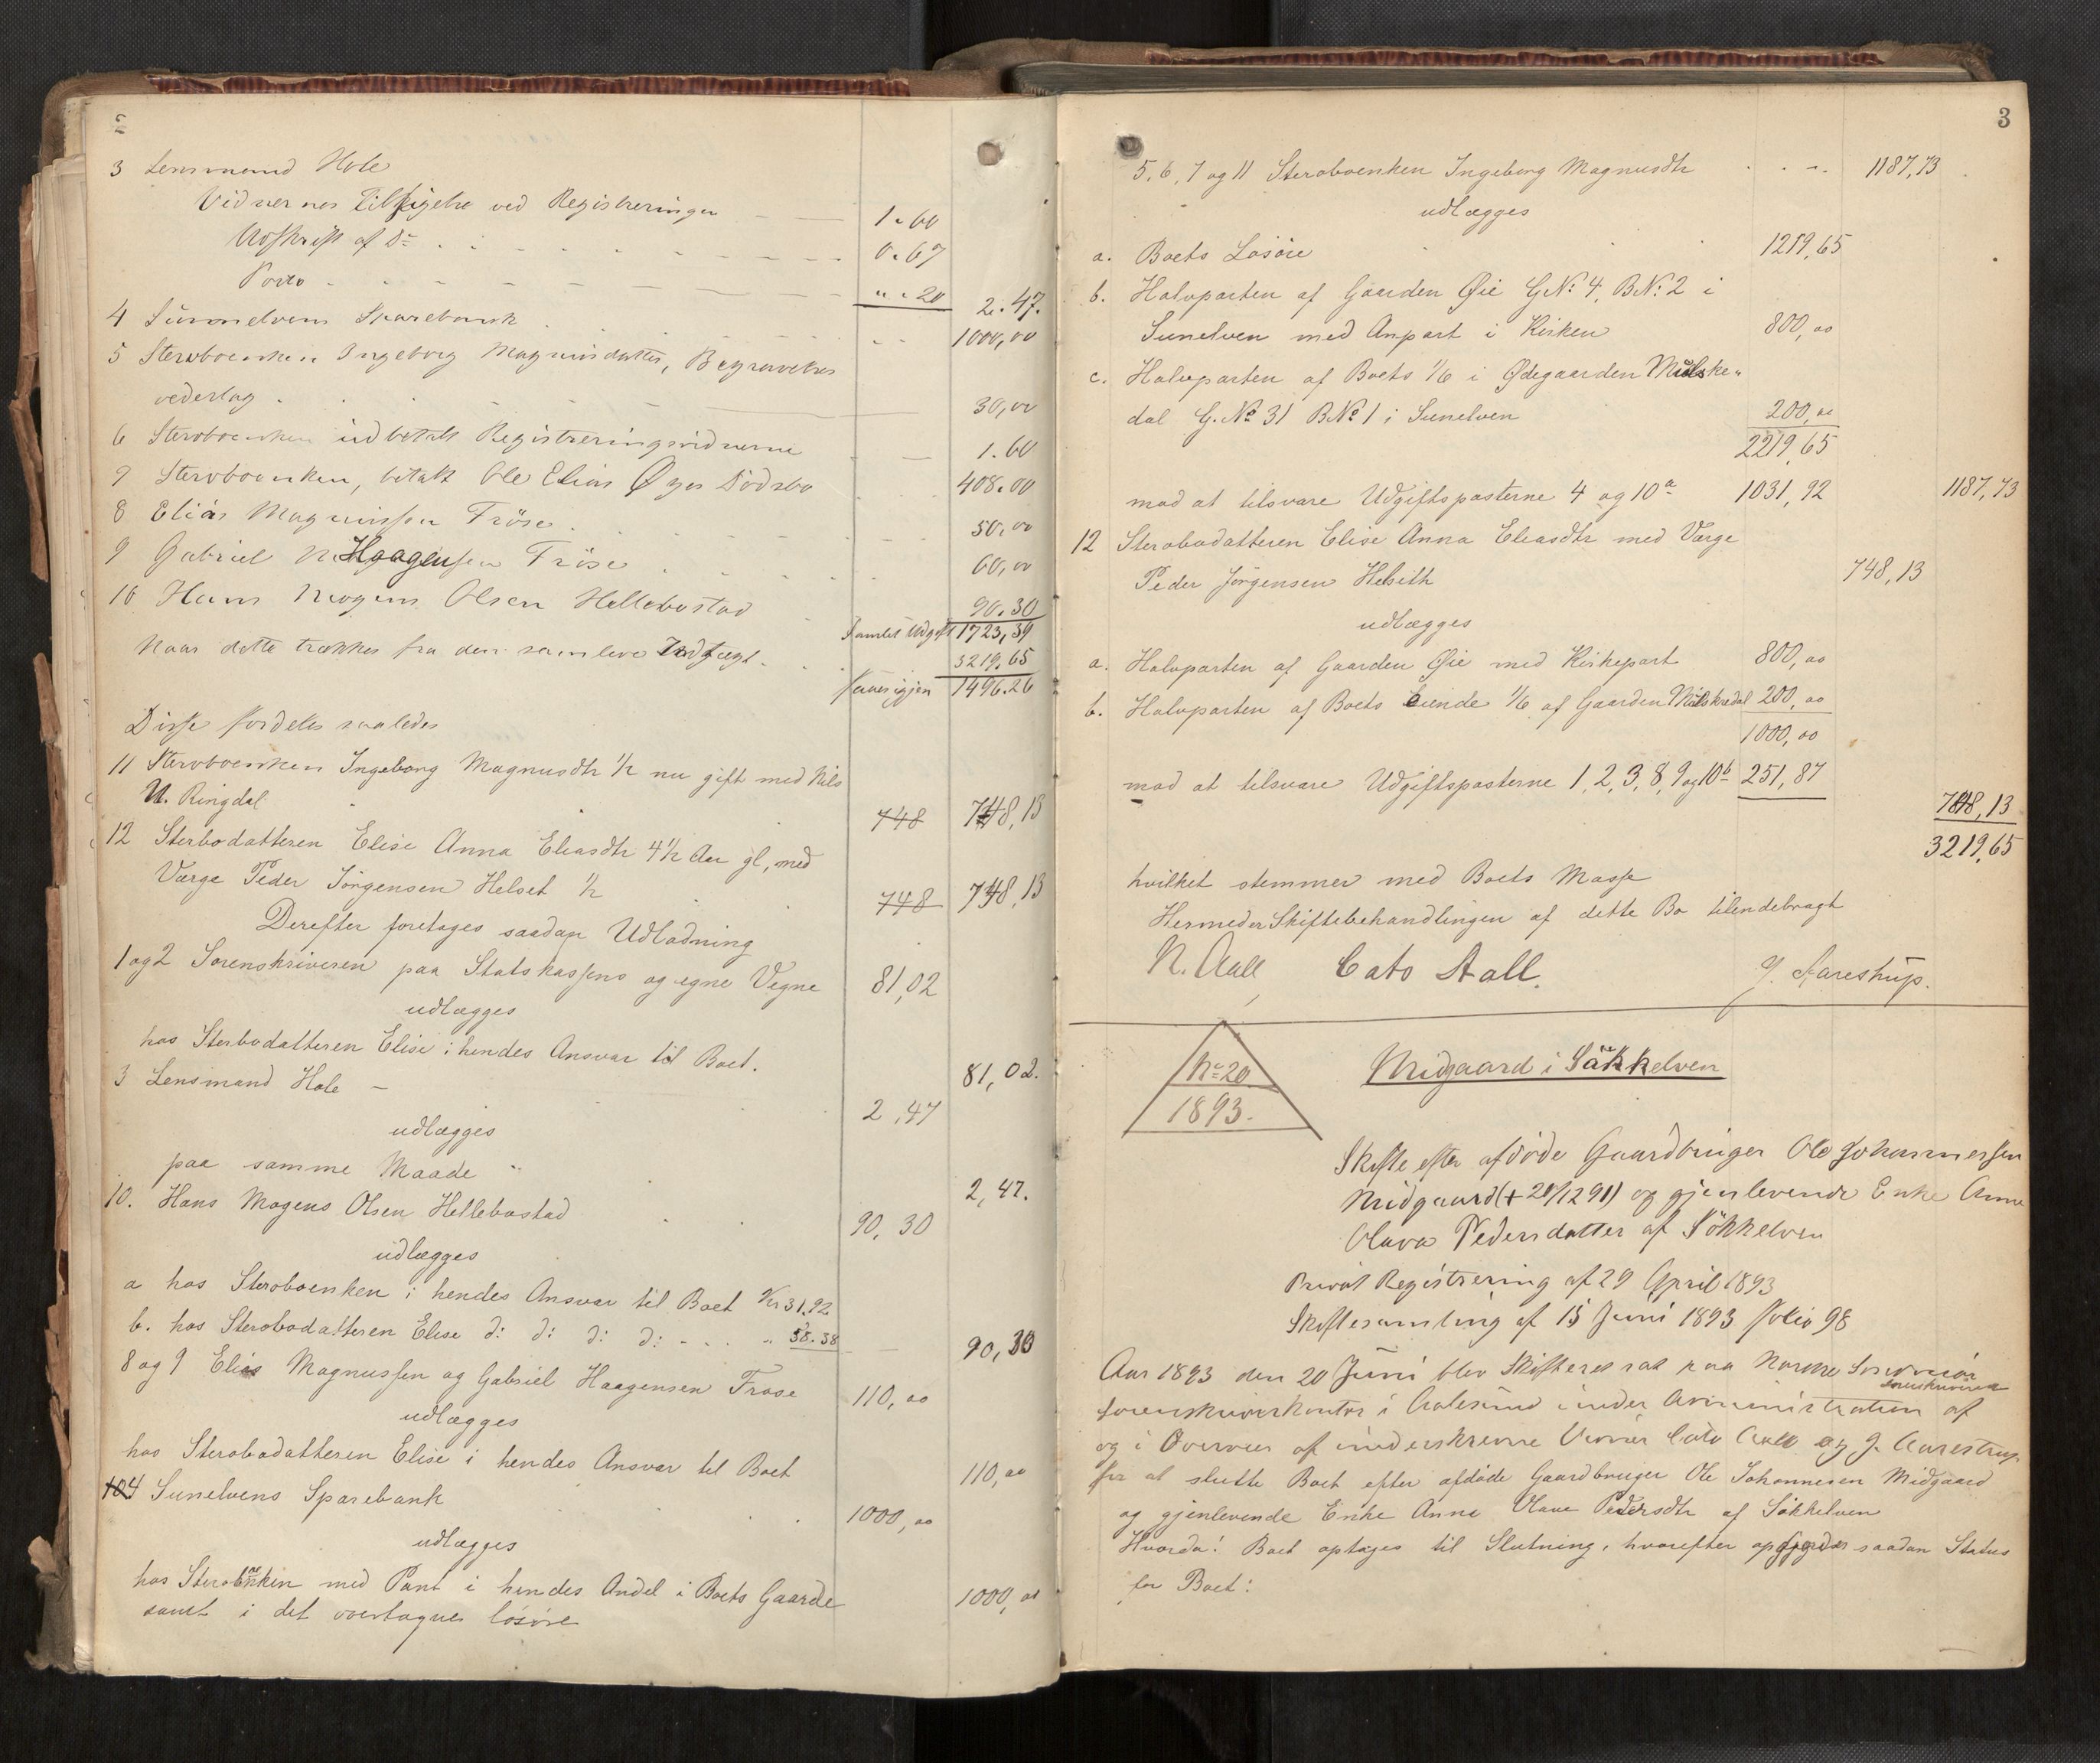 2
3 Lensmand Hole
Vidnernes Tilsigelse ved Registreringen 1.60
Udskrift af Do 0.67
Porto ".20 2.47.
4 Sunnelvens Sparebank 1000,00
5 Sterboenken Ingeborg Magnusdatter, Begravelses
vederlag 30,00
6 Sterboenken udbetalt Registreringsvidnerne 1.60
7 Sterboenken, betalt Ole Elias Øyes Dødsbo 408.00
8 Elias Magnussen Frøse 50,00
9 Gabriel Haagensen Frøse 60,00
10 Hans Mogens Olsen Hellebostad 90.30
Samlet Udgift 1723,39
Naar dette trækkes fra den samlede Indtægt 3219.65
haves igjen 1496.26
Disse fordeles saaledes
11 Sterboenken Ingeborg Magnusdtr 1/2 nu gift med Nils
U. Ringdal 748 748,13
12 Sterbodatteren Elise Anna Eliasdtr 4 1/2 Aar gl, med
Værge Peder Jørgensen Helset 1/2 748 748,13
Derefter foretages saadan Udlodning
1 og 2 Sorenskriveren paa Statskassens og egne Vegne 81,02
udlægges
hos Sterbodatteren Elise i hendes Ansvar til Boet. 81,02.
3 Lensmand Hole - 2,47
udlægges
paa samme Maade 2,47.
10. Hans Mogens Olsen Hellebostad 90,30
udlægges
a hos Sterboenken i hendes Ansvar til Boet Kr 31.92
b. hos Sterbodatteren Elise d: d: d: d: - " 58.38 90,30
8 og 9 Elias Magnussen og Gabriel Haagensen Frøse 110,00
udlægges
hos Sterbodatteren Elise i hendes Ansvar til Boet 110,00
104 Sunelvens Sparebank 1000,00
udlægges
hos Sterboenken med Pant i hendes Andel i Boets Gaarde
samt i det overtagne løsøre 1000,00
3
5, 6, 7 og 11 Sterboenken Ingeborg Magnusdtr 1187,73
udlægges
a. Boets Løsøre 1219,65
b. Halvparten af Gaarden Øie G.No 4, B.No 2 i
Sunelven med Anpart i Kirken 800,00
c. Halvparten af Boets 1/6 i Ødegaarden Mulske-
dal G.No 31 B.No 1 i Sunelven 200,00
2219,65
mod at tilsvare Udgiftsposterne 4 og 10a 1031,92 1187,73
12 Sterbodatteren Elise Anna Eliasdtr med Værge
Peder Jørgensen Helseth 748,13
udlægges
a. Halvparten af Gaarden Øie med Kirkepart 800,00
b. Halvparten af Boets eiende 1/6 af Gaarden Mulskredal 200,00
1000,00
mod at tilsvare Udgiftsposterne 1, 2, 3, 8, 9 og 10b 251,87
748,13
3219,65
hvilket stemmer med Boets Masse
Hermed er Skiftebehandlingen af dette Bo tilendebragt
N. Aall Cato Aall. J. Aarestrup.
No 20
1893.
Midgaard i Søkkelven
Skifte efter afdøde Gaardbruger Ole Johannessen
Midgaard (+ 20/12 91) og gjenlevende Enke Anne
Olava Pedersdatter af Søkkelven
Privat Registrering af 29 April 1893
Skiftesamling af 15 Juni 1893 folio 98
Aar 1893 den 20 Juni blev Skifteret sat paa Nordre Søndmør
sorenskriverkontor i Aalesund under Administration af Sorenskriveren
og i Overvær af underskrevne Vidner Cato Aall og J. Aarestrup
for at slutte Boet efter afdøde Gaardbruger Ole Johannesen Midgaard
og gjenlevende Enke Anne Olave Pedersdtr af Søkkelven
Hvorda! Boet optages til Slutning, hvorefter opgjordes saadan Status
for Boet: